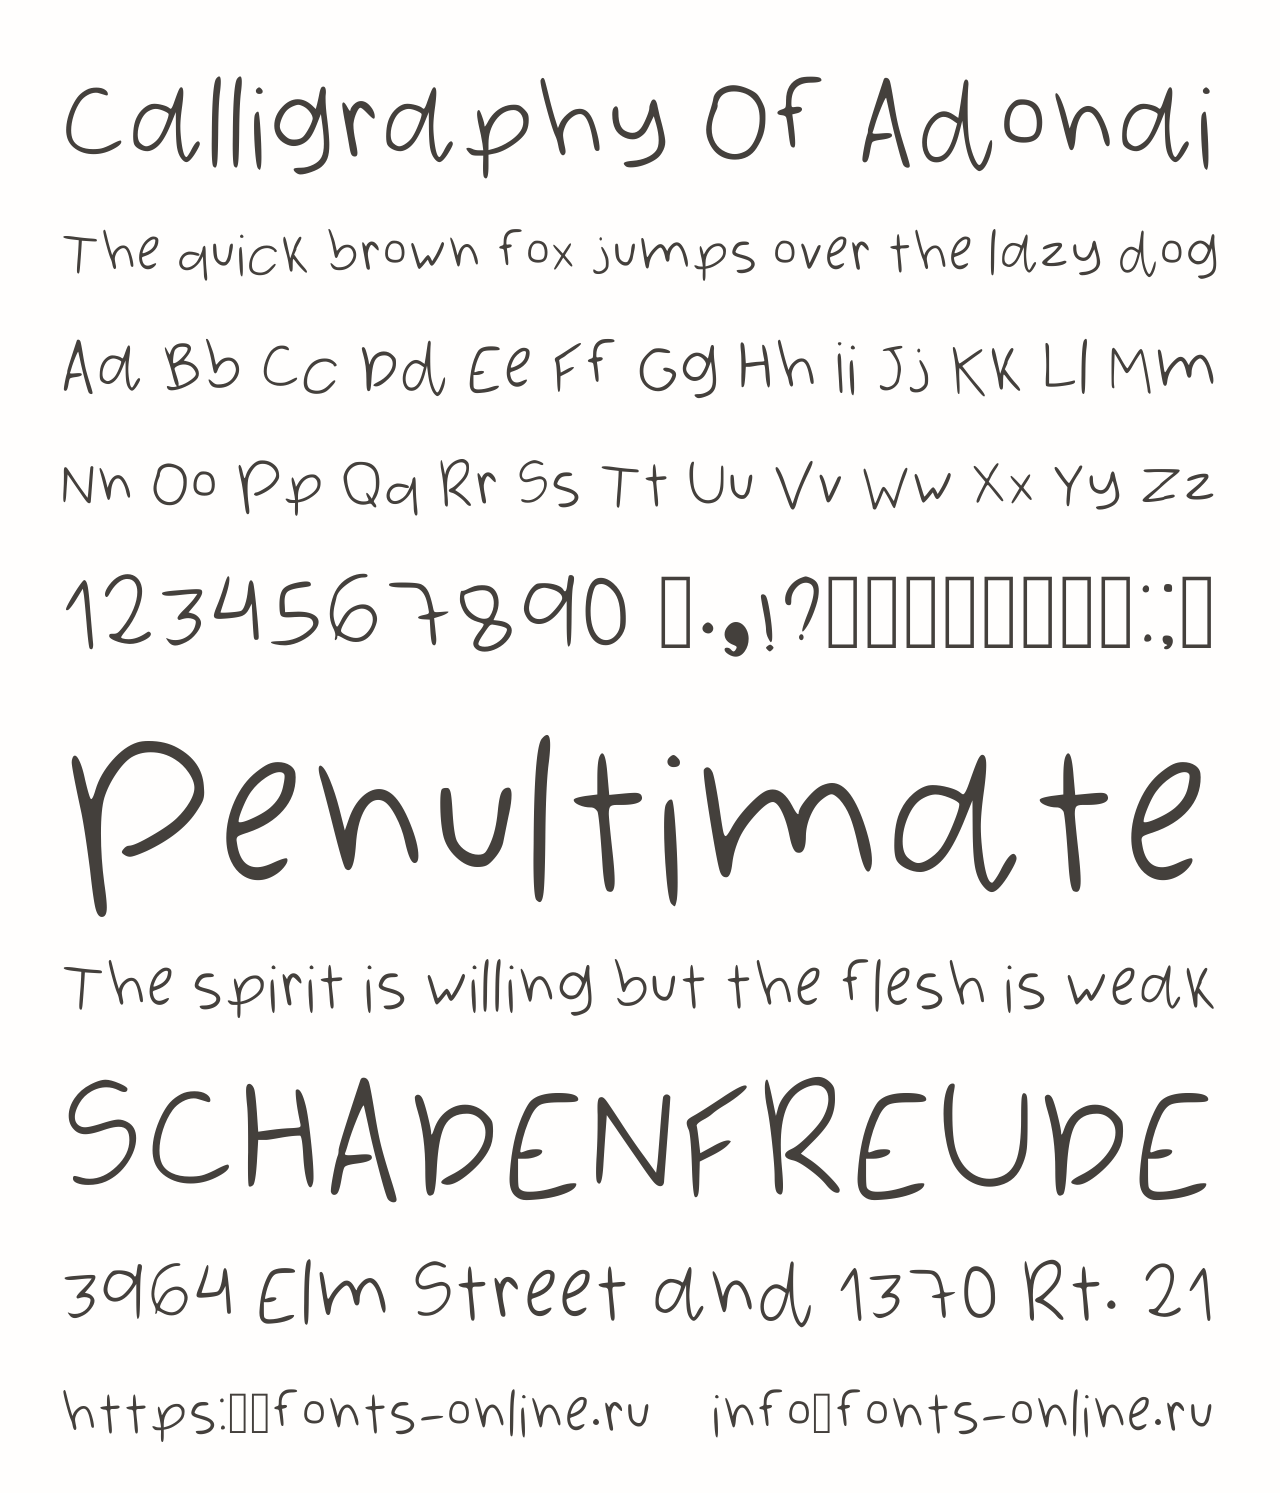 Calligraphy Of Adonai
The quick brown fox jumps over the lazy dog
Aa Bb Cc Dd Ee Ff Gg Hh Ii Jj Kk Ll Mm
Nn Oo Pp Qq Rr Ss Tt Uu Vv Ww Xx Yy Zz
1234567890 .,!? :;
Penultimate
The spirit is willing but the flesh is weak
SCHADENFREUDE
3964 Elm Street and 1370 Rt. 21
https:▯▯fonts-online.ru info▯fonts-online.ru